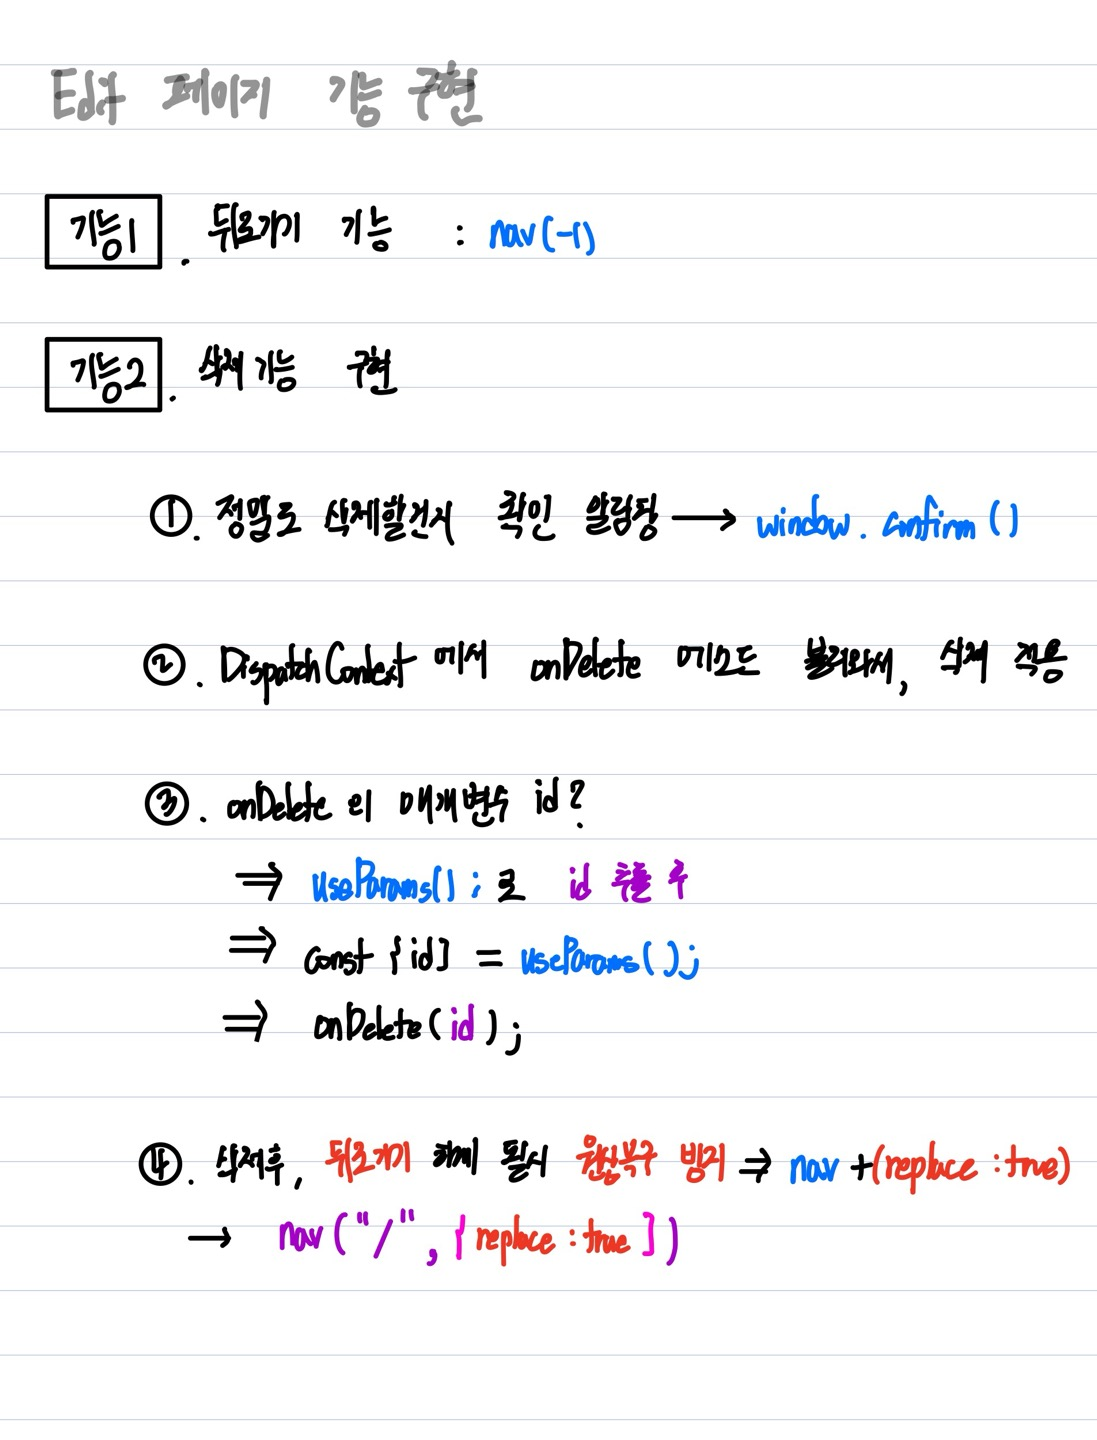 Edit 페이지 기능 구현
기능1. 뒤로가기 기능 : nav(-1)
기능2. 삭제기능 구현
①. 정말로 삭제할건지 확인 알림창 → window.confirm()
②. DispatchContext 에서 onDelete 메소드 불러와서, 삭제 적용
③. onDelete 의 매개변수 id?
⇒ useParams(); 로 id 추출 후
⇒ const {id} = useParams();
⇒ onDelete(id);
④. 삭제후, 뒤로가기 하게 될시 원상복구 방지 ⇒ nav +(replace : true)
→ nav("/", {replace : true})